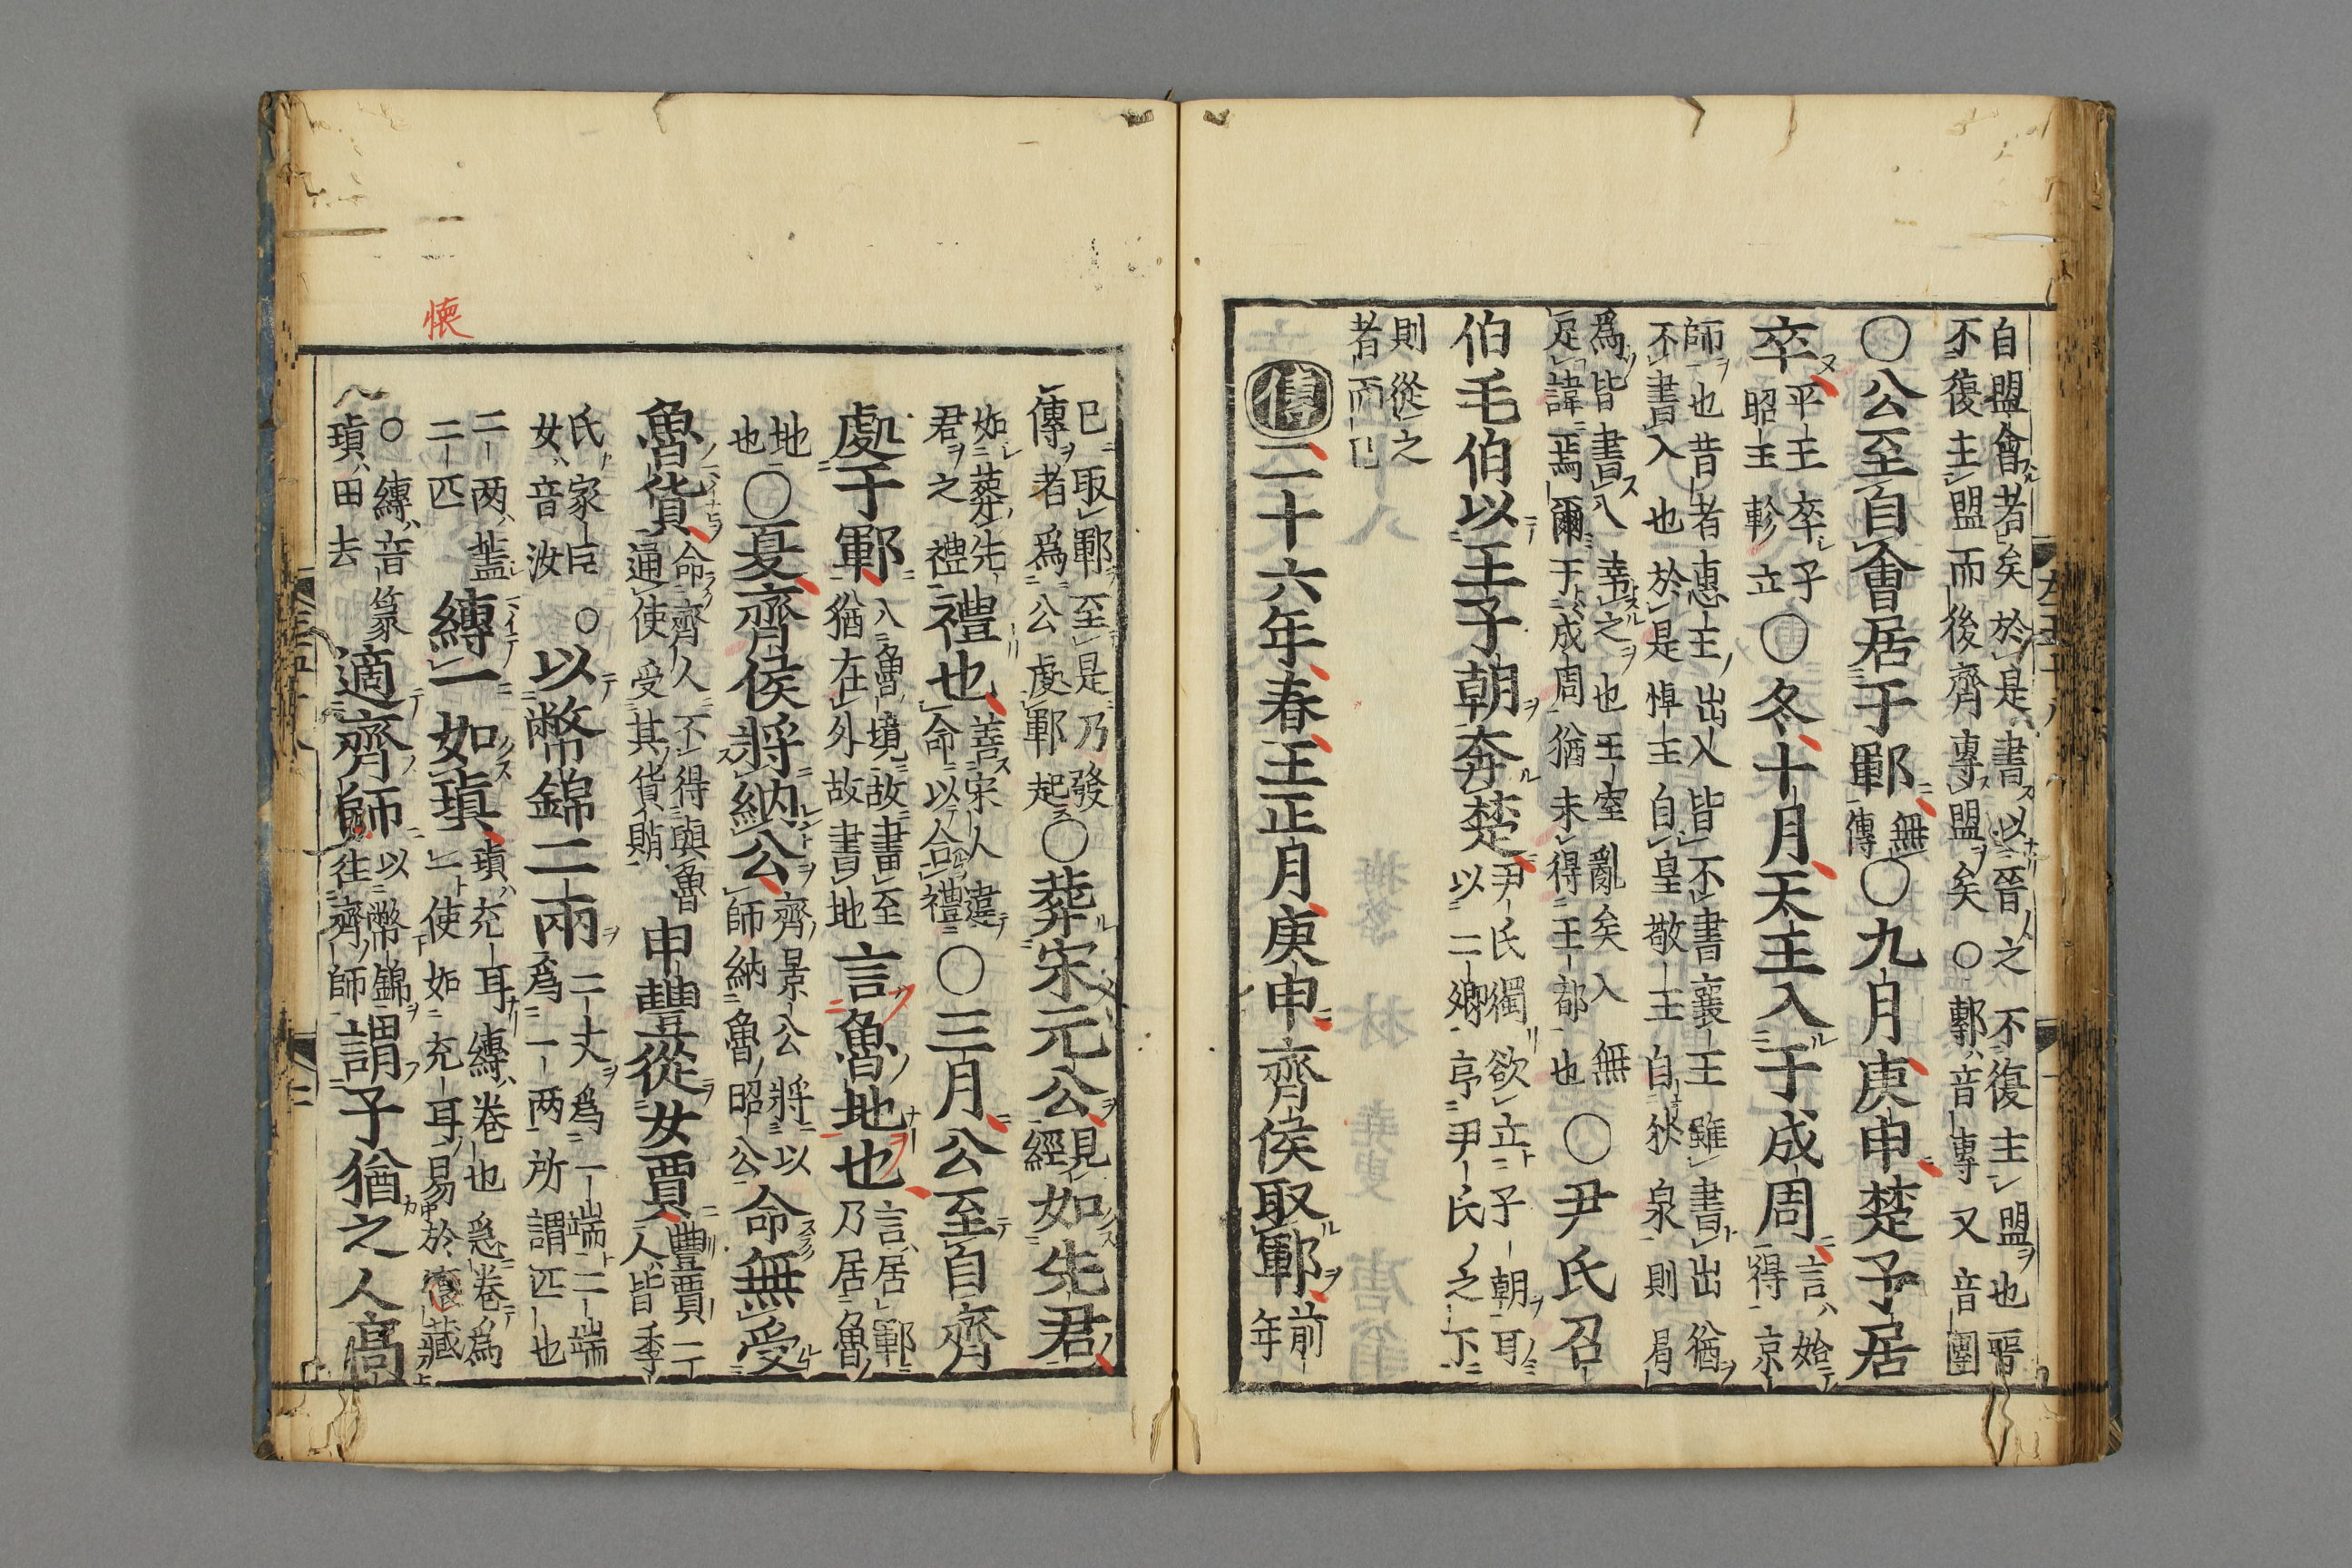 自盟會者矣於是書以晉之不復主盟也焉
不復主盟而後齊專盟矣○鄟音專又音團
○公至自會居于鄆無傳○九月庚申楚子居
卒平王卒子昭王軫立○冬十月天王入于成周言始得京
師也昔者惠王出入皆不書襄王雖書出猶
不書入也於是悼王自皇敬王自狄泉則曷
爲皆書入幸之也王室亂矣入無
足諱焉爾于成周猶未得王都也○尹氏召
伯毛伯以王子朝奔楚尹氏獨欲立子朝耳以二卿亭尹氏之下
則從之
者而已
傳二十六年春王正月庚申齊侯取鄆前年
已取鄆至是乃發
傳者爲公處鄆起○葬宋元公見經如先君
如葬先
君之禮禮也善宋人違命以合禮○三月公至自齊
處于鄆入魯境故書至猶在外故書地言魯地也言居鄆乃居魯
地也○夏齊侯將納公齊景公將以師納魯昭公命無受
魯貨命齊人不得與魯通使受其貨賂申豐從女賈豐賈二人皆季
氏家臣○女音汝以幣錦二兩二丈爲一端二端爲一两所謂匹也
二两蓋二匹縛一如瑱瑱充耳縛卷也急卷爲一使如充耳易於懷藏
○縛音篆瑱田去適齊師以幣錦往齊師謂子猶之人高
懷